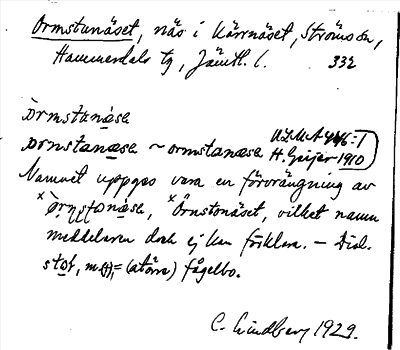 Ormstunäset, näs i Kärrnäset, Strömsån,
Hammerdals tg, Jämtl. l. 332
Òrmstana̱sa
ormstana̱sa ~ ormstanæsa ULMA 446:1
H. Geijer 1910
Namnet uppges vara en förvrängning av
ˣÖrnstonäset, vilket namn
meddelaren dock ej kan förklara. – Dial.
sto̱t, m(f), = (större) fågelbo.
C. Lindberg 1929.